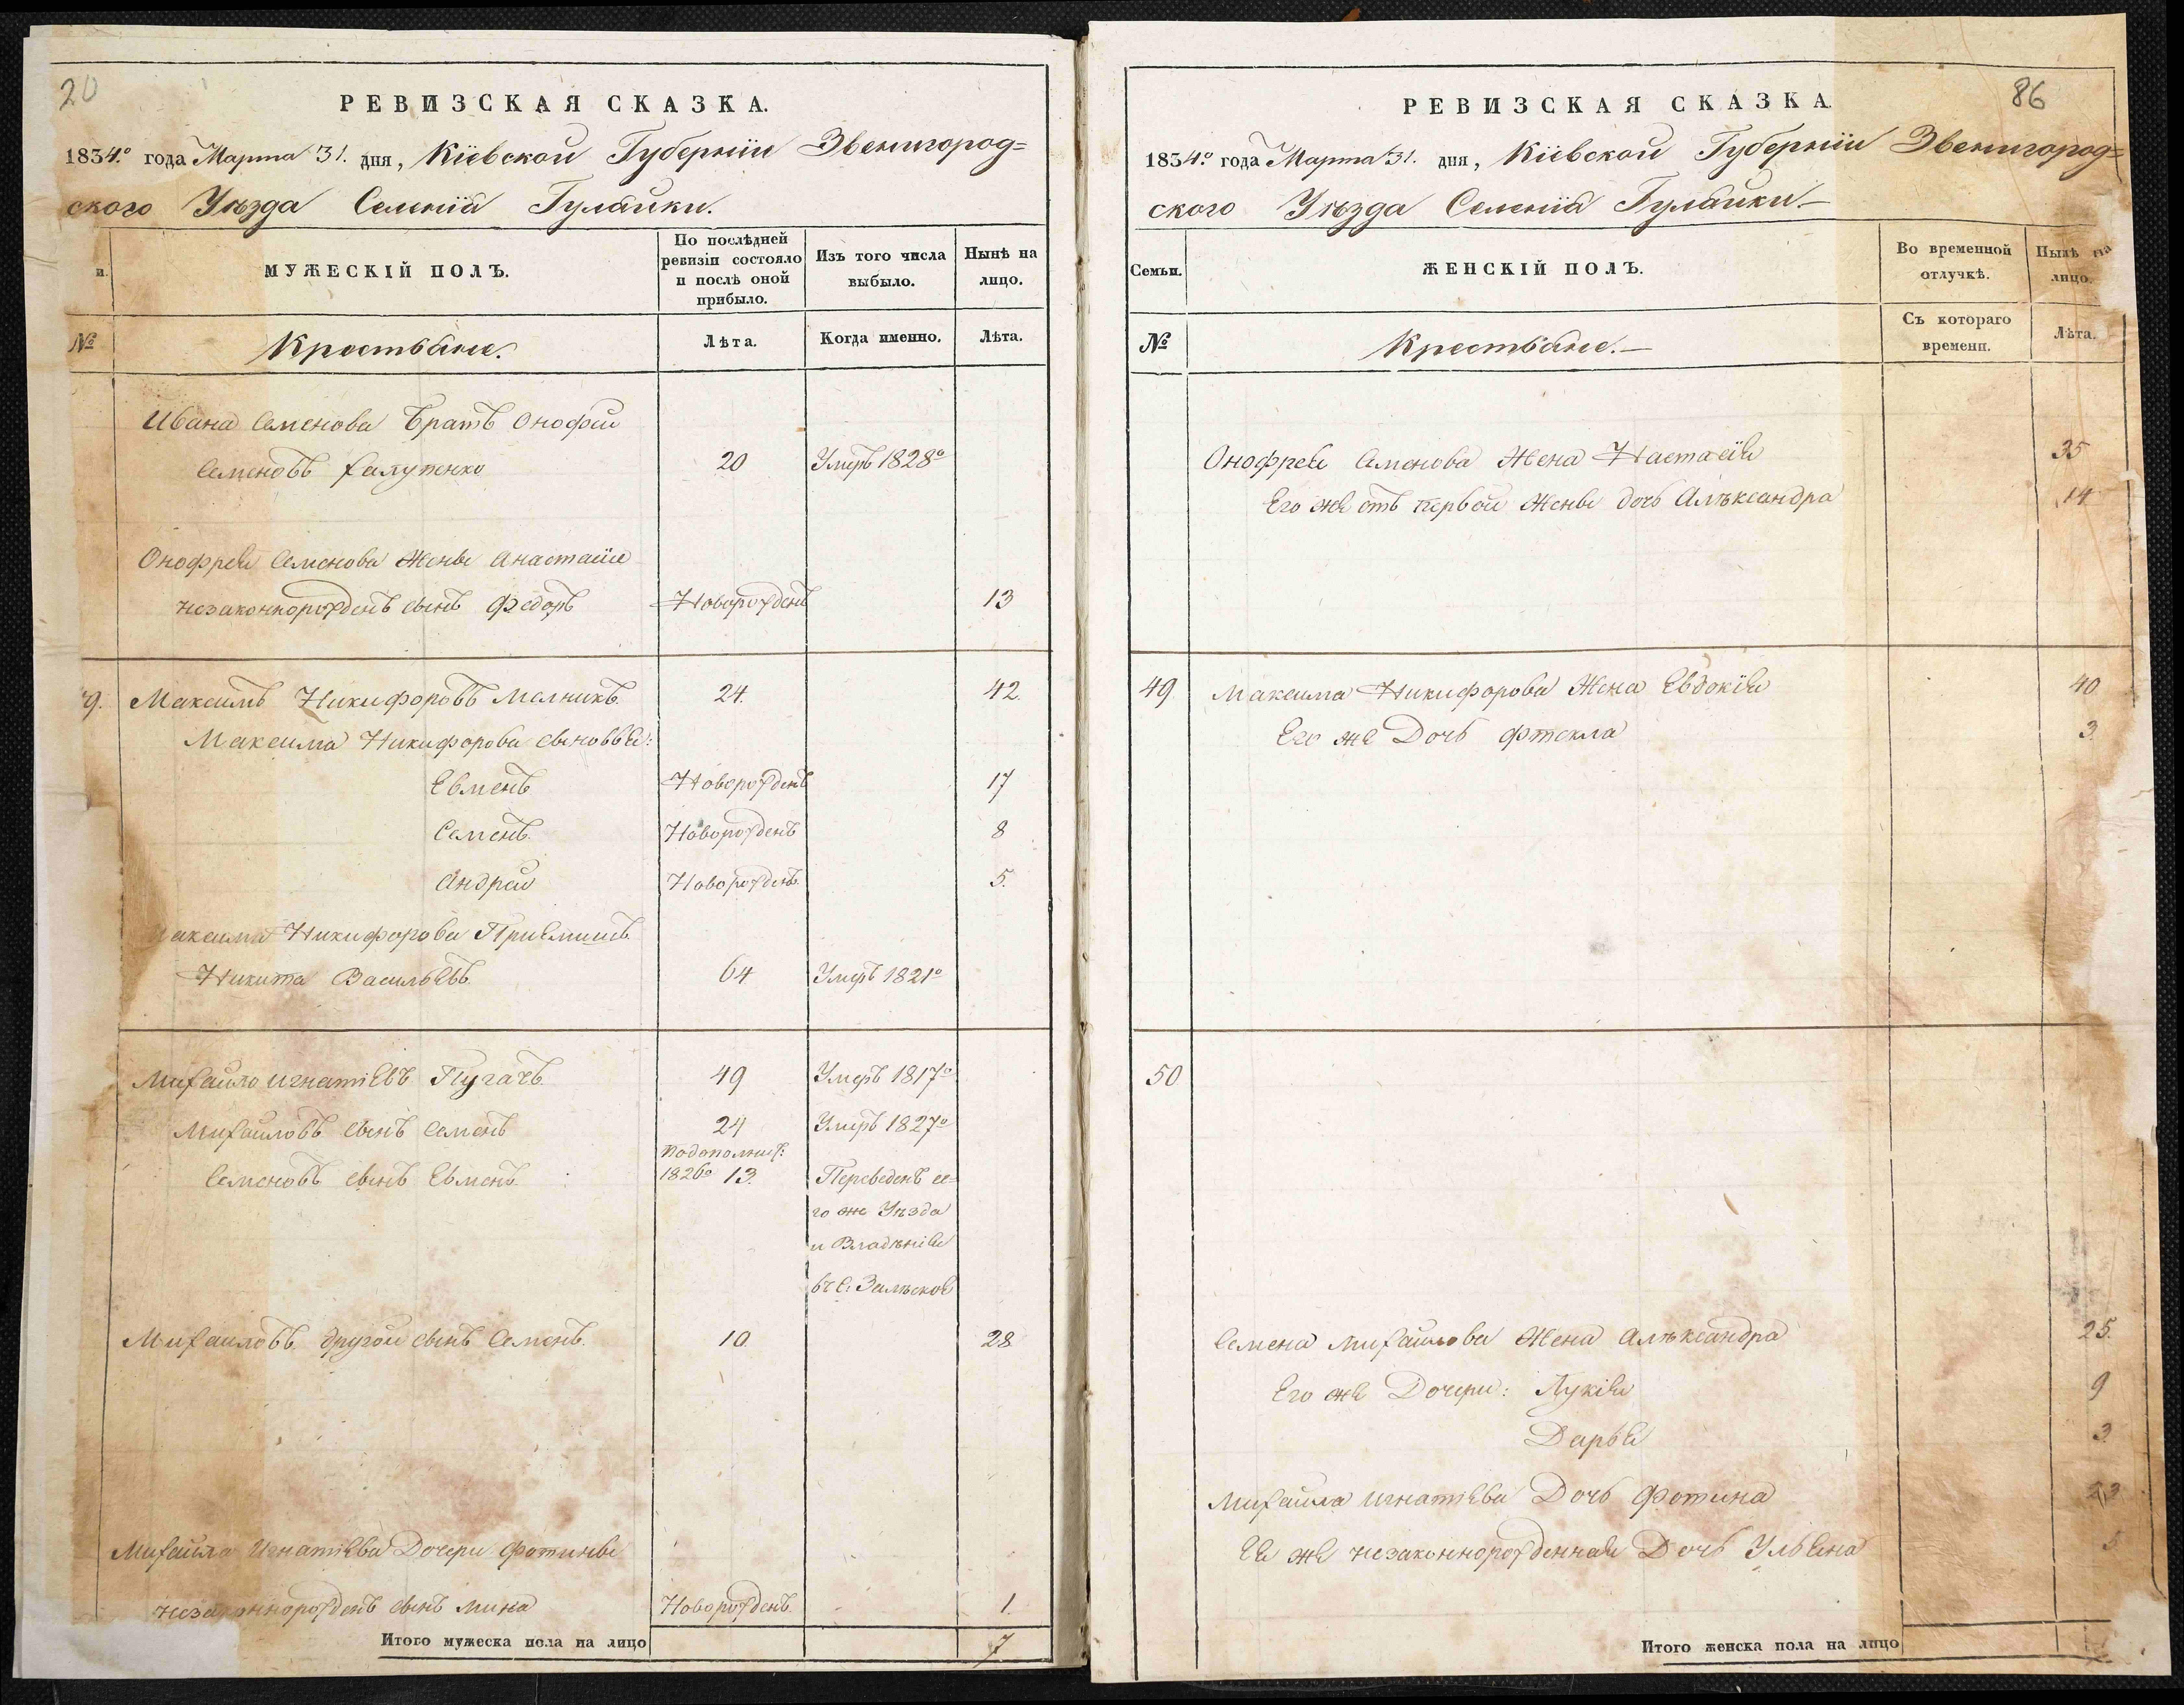 20
РЕВИЗСКАЯ СКАЗКА.
1834º года Марта 31. дня, Кіевской Губерніи Звенигород=
ского Уѣзда Селенія Гулайки.
и.
МУЖЕСКІЙ ПОЛЪ.
По послѣдней ревизіи состояло и послѣ оной прибыло.
Изъ того числа выбыло.
Нынѣ на лицо.
№
Крестьяне.
Лѣта.
Когда именно.
Лѣта.
Ивана Семенова Братъ Онофрій
Семеновъ 20 Умеръ 1828º
Онофрея Семенова Жены Анастасіи
незаконнорожденъ сынъ Федоръ Новорожденъ 13
9. Максимъ Никифоровъ Мелникъ. 24. 42.
Максима Никифорова сыновья:
Евменъ Новорожденъ 17
Семенъ. Новорожденъ 8
Андрей Новорожденъ. 5.
Максима Никифорова Пріемышъ
Никита Васильевъ 64 Умеръ 1821º
Михайло Игнатіевъ Пугачъ. 49 Умеръ 1817º
Михайловъ сынъ Семенъ 24 Умеръ 1827º
Семеновъ сынъ Евменъ 1826º 13. Переведенъ се=
го же Уѣзда
и Владѣнія
въ с.
Михайловъ другой сынъ Семенъ. 10. 28
Михайла Игнатіева Дочери Фотины
незаконнорожденъ сынъ Мина Новорожденъ. 1.
Итого мужеска пола на лицо 7
86
РЕВИЗСКАЯ СКАЗКА.
1834º года Марта 31. дня, Кіевской Губерніи Звенигород=
ского Уѣзда Селенія Гулайки.—
Семьи.
ЖЕНСКІЙ ПОЛЪ.
Во временной отлучкѣ.
Нынѣ на лицо.
№
Крестьяне.—
Съ котораго времени.
Лѣта.
Онофрея Семенова Жена Настасія 35
Его же отъ первой Жены дочь Алѣксандра 14
49 Максима Никифорова Жена Евдокія 40
Его же Дочь Фтекла 3
50
Семена Михайлова Жена Алѣксандра 25.
Его же Дочери: Лукія 9
Дарья 3
Михайла Игнатіева Дочь Фотина
Ея же незаконнорожденная Дочь Ульяна
Итого женска пола на лицо